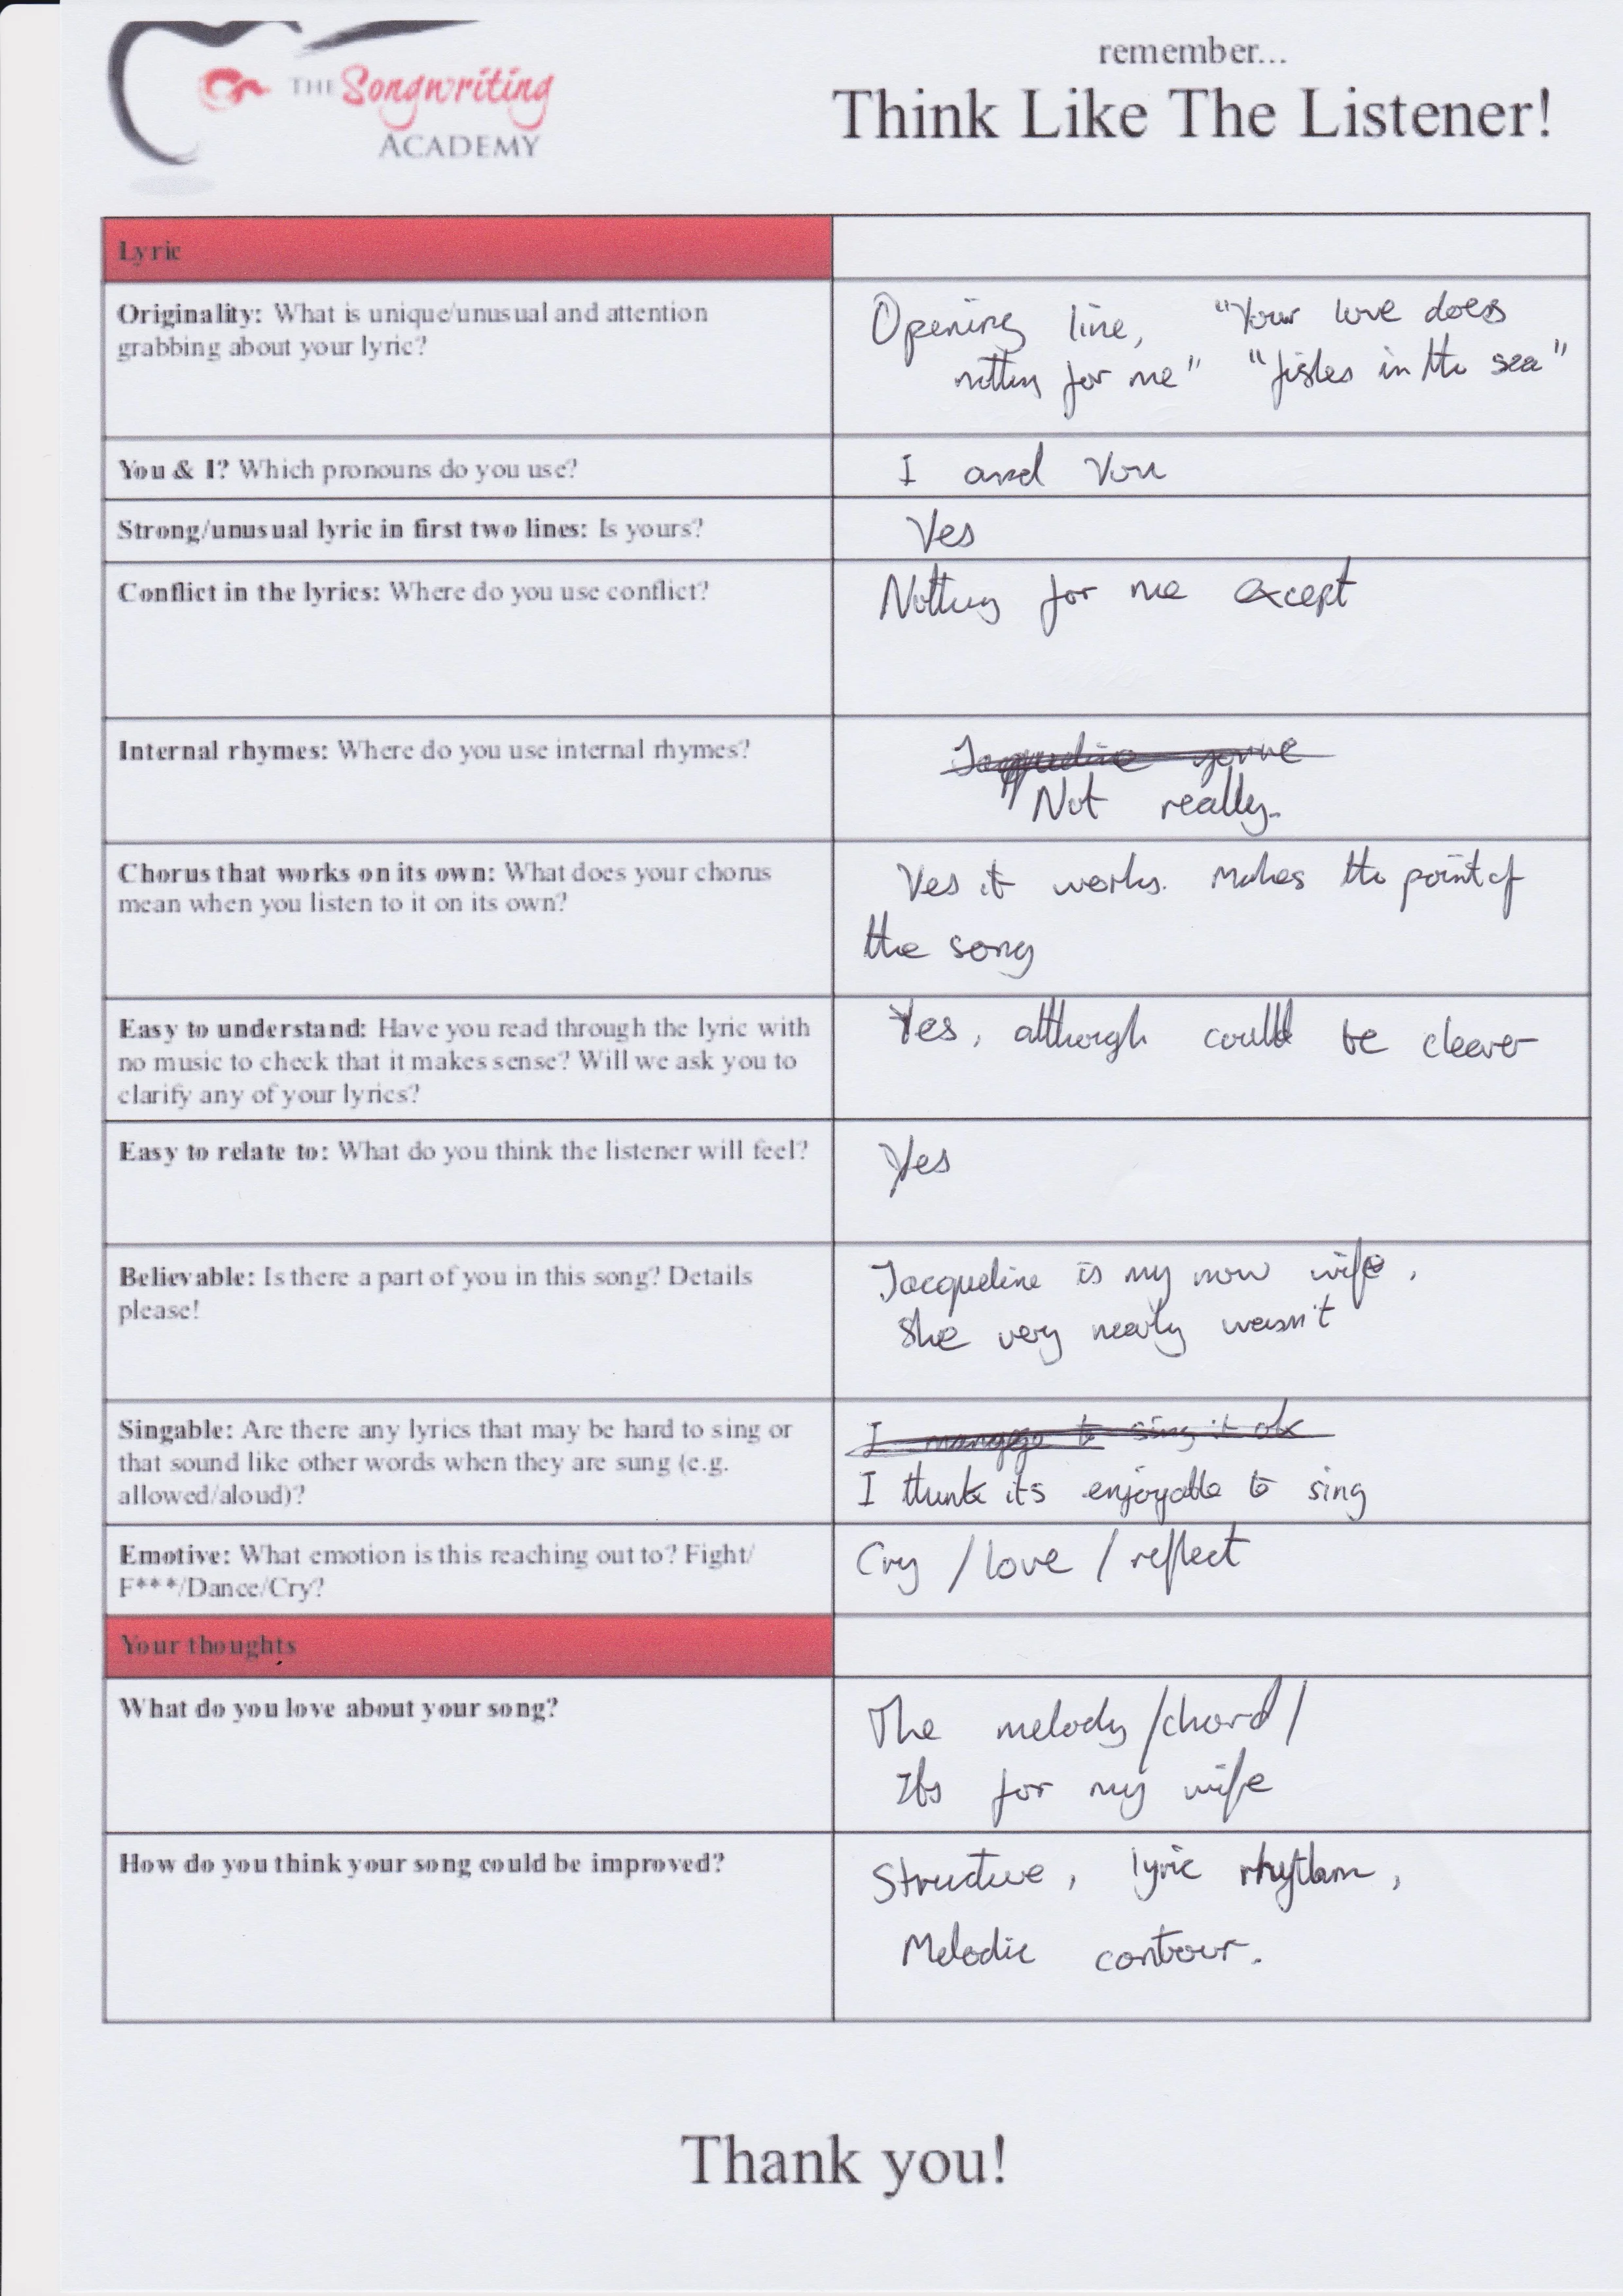 remember...
THE Songwriting
ACADEMY
Think Like The Listener!
Lyric
Originality: What is unique/unusual and attention
grabbing about your lyric?
Opening line, "Your love does
nothing for me" "fishes in the sea"
You & I? Which pronouns do you use?
I and You
Strong/unusual lyric in first two lines: Is yours?
Yes
Conflict in the lyrics: Where do you use conflict?
Nothing for me except
Internal rhymes: Where do you use internal rhymes?
Jacqueline you're
Not really.
Chorus that works on its own: What does your chorus
mean when you listen to it on its own?
Yes it works. Makes the point of
the song
Easy to understand: Have you read through the lyric with
no music to check that it makes sense? Will we ask you to
clarify any of your lyrics?
Yes, although could be clearer
Easy to relate to: What do you think the listener will feel?
Yes
Believable: Is there a part of you in this song? Details
please!
Jacqueline is my now wife,
She very nearly wasn't
Singable: Are there any lyrics that may be hard to sing or
that sound like other words when they are sung (e.g.
allowed/aloud)?
I manage to sing it ok
I think its enjoyable to sing
Emotive: What emotion is this reaching out to? Fight/
F***/Dance/Cry?
Cry / love / reflect
Your thoughts
What do you love about your song?
The melody /chord /
Its for my wife
How do you think your song could be improved?
Structure, lyric rhythm,
Melodic contour.
Thank you!